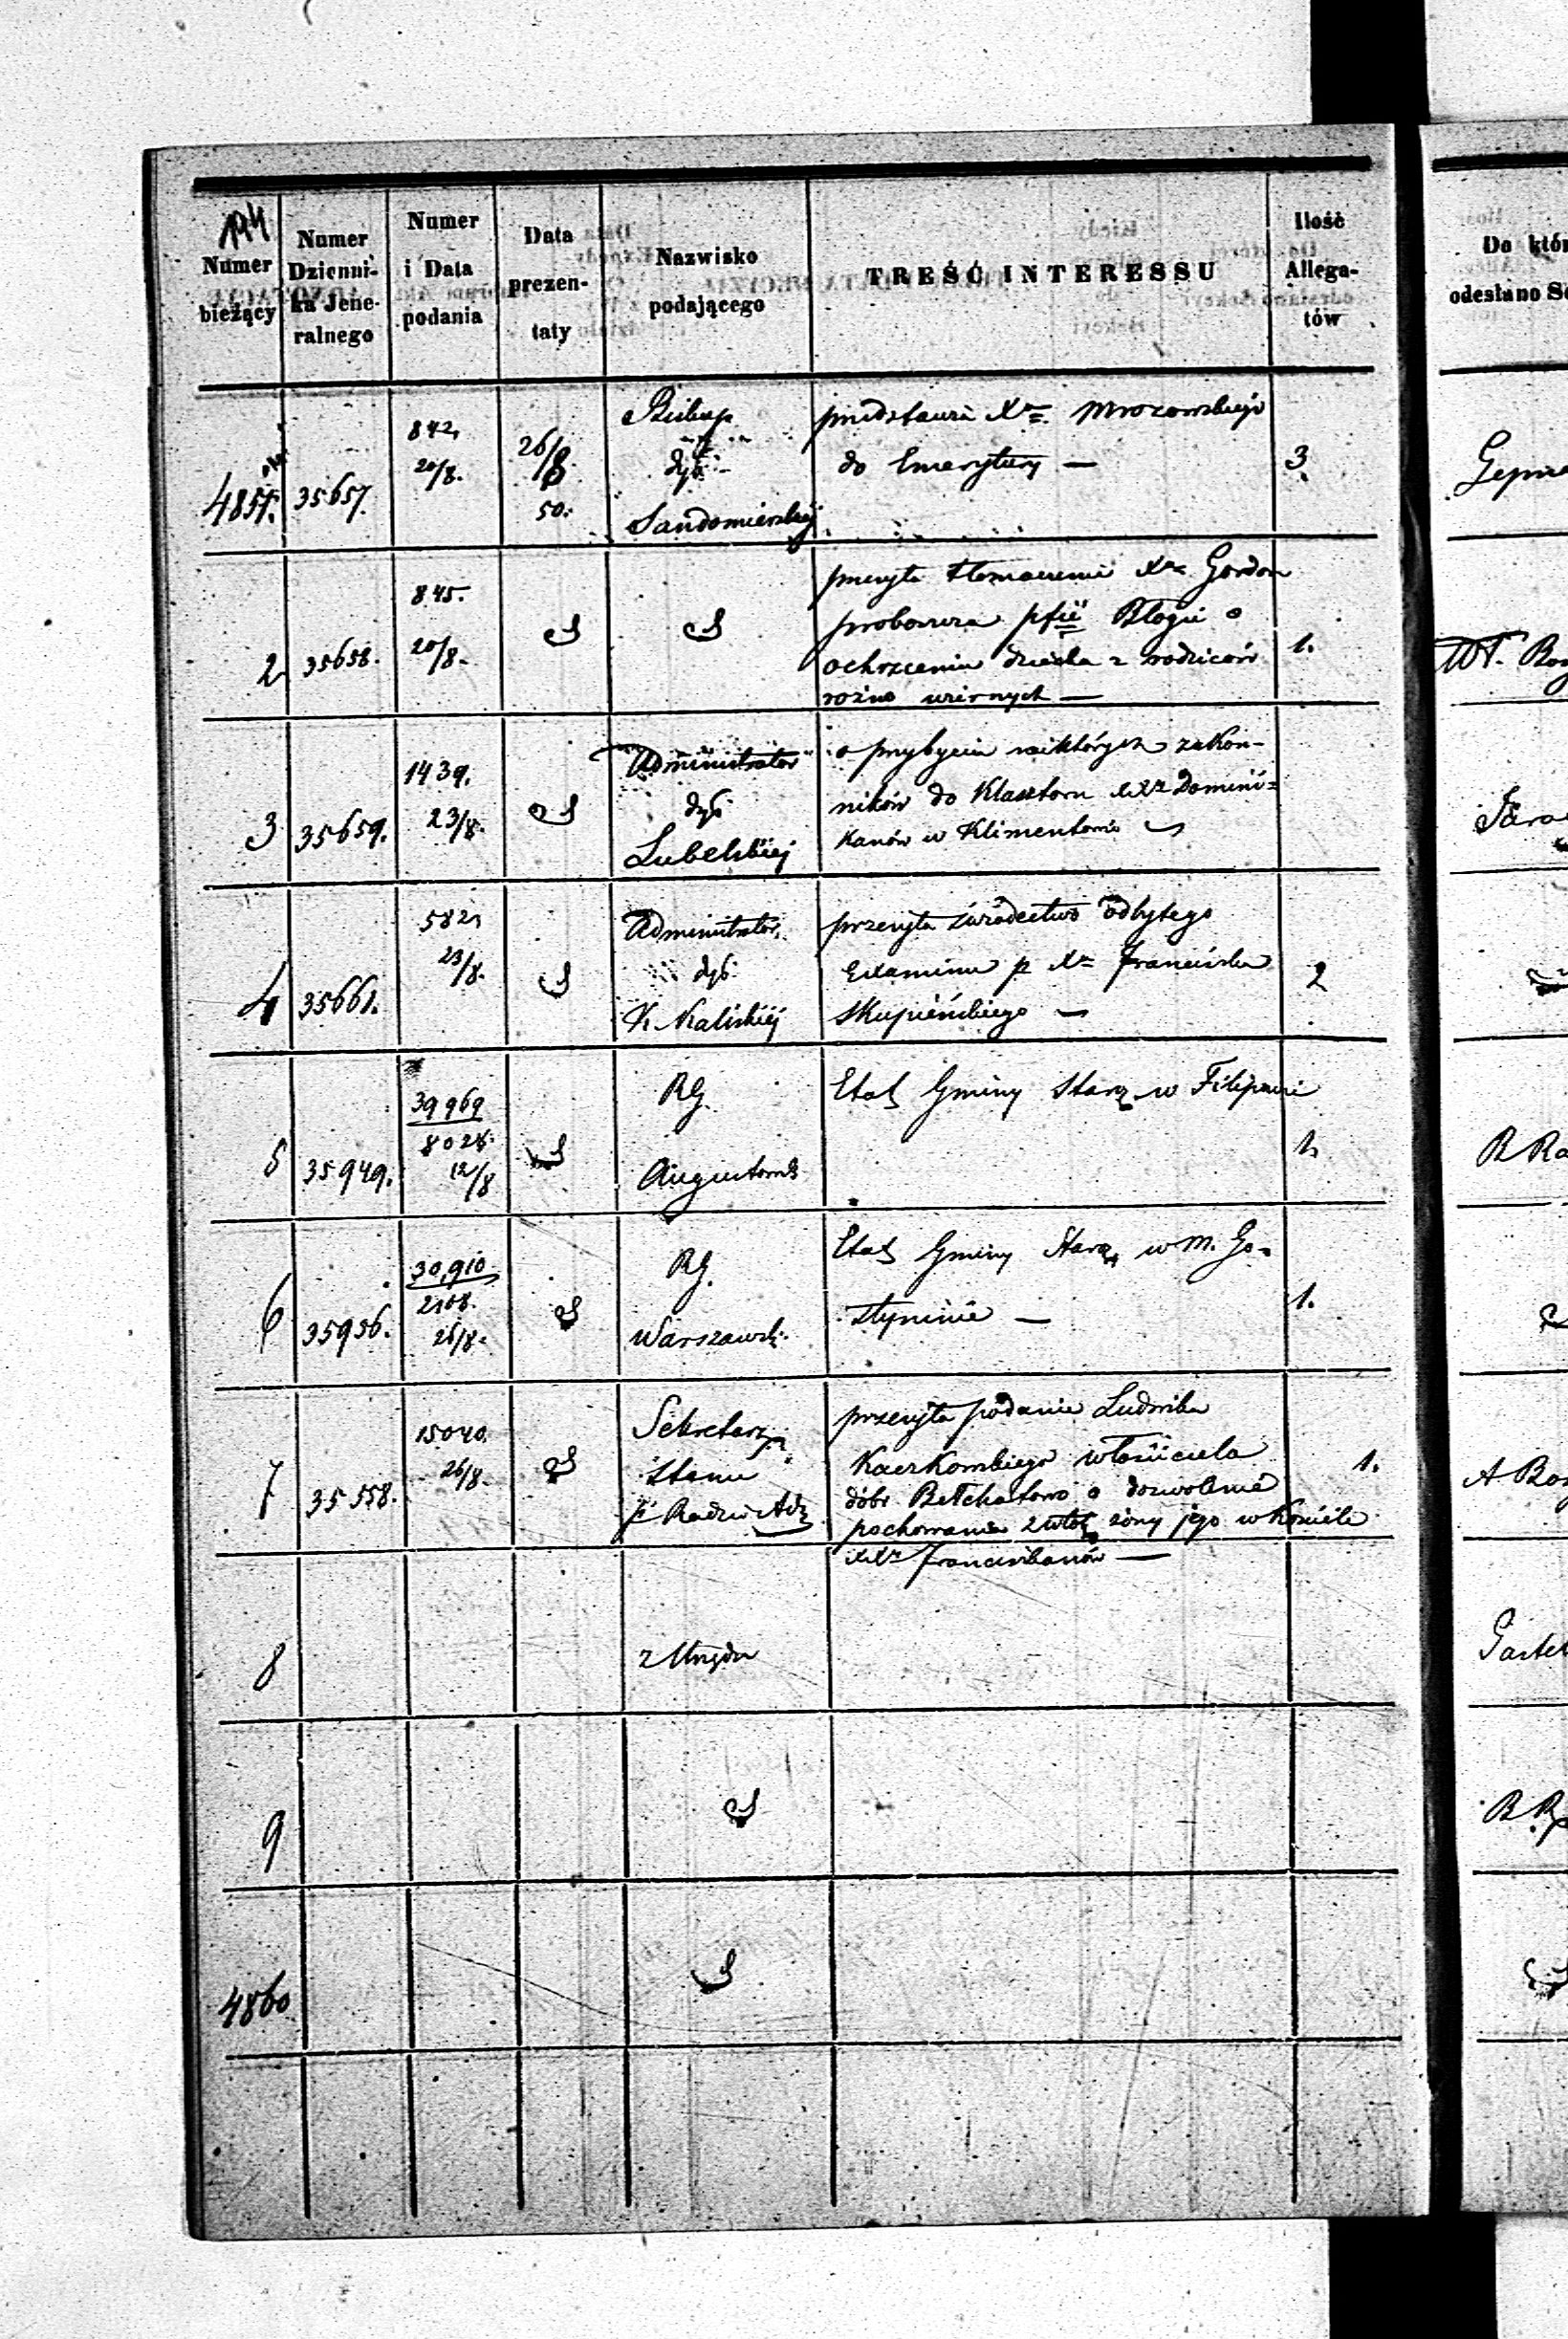 194
Numer
bieżący
Numer
Dzienni-
ka Jene-
ralnego
Numer
i Data
podania
Data
prezen-
taty
Nazwisko
podającego
TREŚĆ INTERESSU
Ilość
Allega-
tów
Do któr
odesłano Se
4851.
35657.
842,
20/8.
26/8
50.
Biskup
dyc
Sandomierskiej
przedstawia Xa Mrozowskiego
do Emerytury —
3.
2
35658.
845.
20/8.
przesyła tłomaczenie Xa Gordon
proboszcza pfii Błogie o
ochrzceniu dziecka z rodziców
różno wiernych —
1.
WP.
3
35659.
1439.
23/8.
Administrator
dyc
Lubelskiej
o przybyciu niektórych zakon-
ników do Klasztoru XXy Domini-
kanów w Klimentowie
4
35661.
582,
23/8.
Administrator
dyc.
K. Kaliskiej
przesyła świadectwo odbytego
Examinu p Xa Franciszka
Skupieńskiego —
2
5
35949.
39969
8028.
12/8
RG.
Augustows
Etat Gminy Starz w Filipowie
1.
6
35956.
30,910
2108.
26/8.
RG.
Warszawsk.
Etat Gminy Starz w M. Go-
styninie —
1.
7
35558.
15040.
26/8.
Sekretarz
Stanu
p Radzie Adz
przesyła podanie Ludwika
Kaczkowskiego właściciela
dóbr Bełchatowo o dozwolenie
pochowania zwłok żony jego w Kościele
XXy Franciszkanów —
1.
8
z Urzędu
9
4860